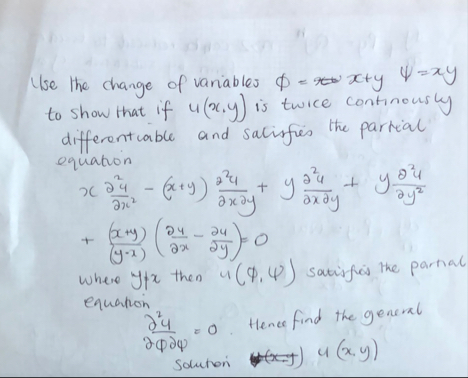 Use the change of variables ϕ = x+y ψ = xy
to show that if u(x,y) is twice continously
differentiable and satisfies the partial
equation
x ∂²u/∂x² - (x+y) ∂²u/∂x∂y + y ∂²u/∂x∂y + y ∂²u/∂y²
+ (x+y)/(y-x) (∂u/∂x - ∂u/∂y) = 0
where y≠x then u(ϕ,ψ) satisfies the partial
equation
∂²u/∂ϕ∂ψ = 0. Hence find the general
solution u(x,y)